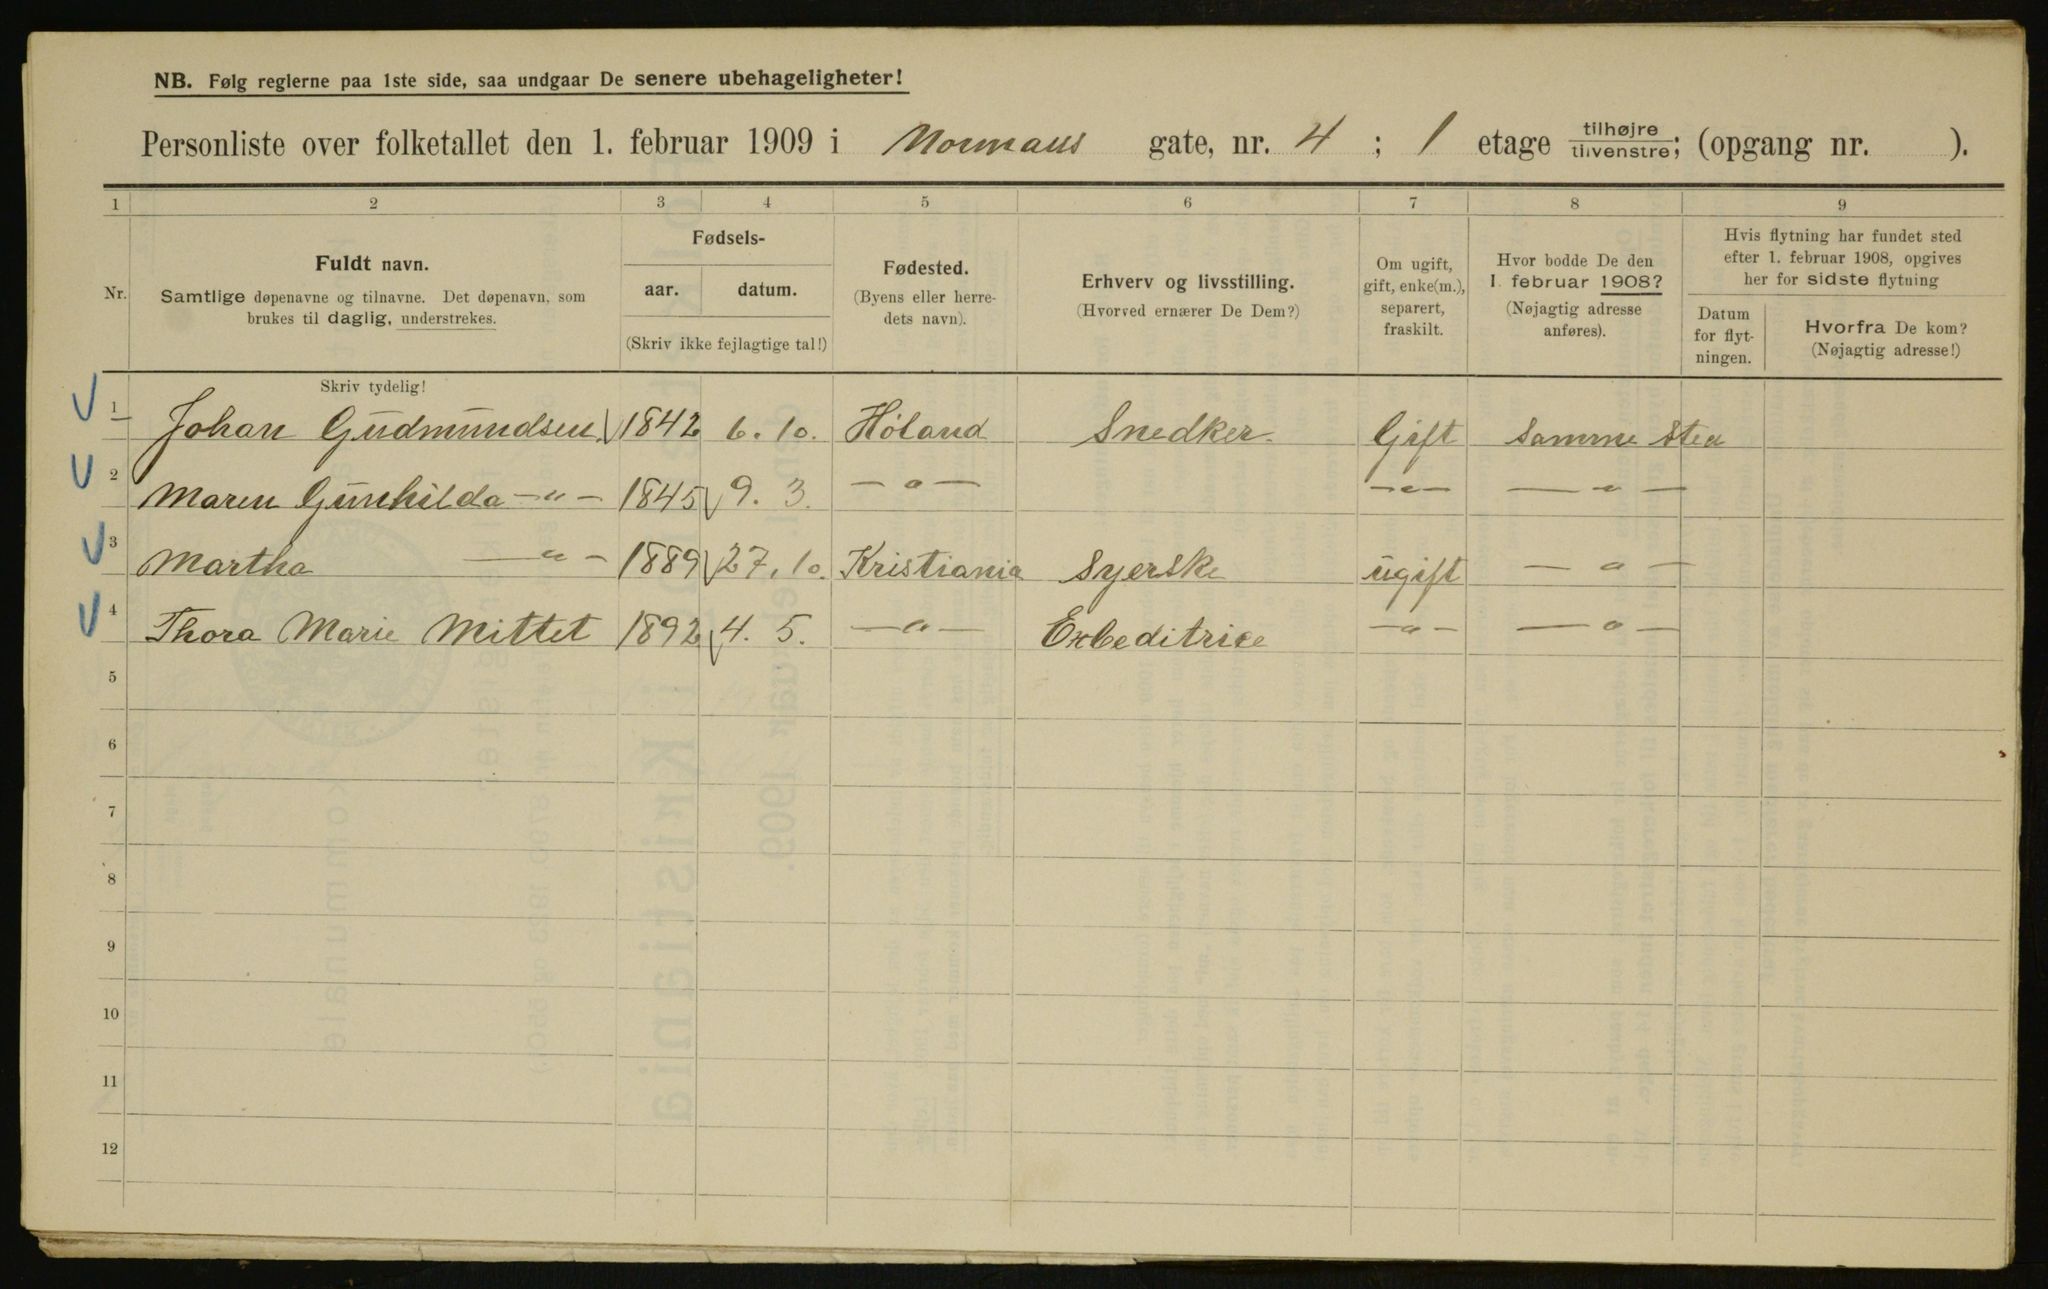 NB. Følg reglerne paa 1ste side, saa undgaar De senere ubehageligheter!
Personliste over folketallet den 1. februar 1909 i Normans gate, nr. 4 ; 1 etage tilhøjre/tilvenstre; (opgang nr. ).
1 2 3 4 5 6 7 8 9
Nr.
Fuldt navn.
Samtlige døpenavne og tilnavne. Det døpenavn, som
brukes til daglig, understrekes.
Fødsels-
aar. datum.
(Skriv ikke fejlagtige tal!)
Fødested.
(Byens eller herre-
dets navn).
Erhverv og livsstilling.
(Hvorved ernærer De Dem?)
Om ugift,
gift, enke(m.),
separert,
fraskilt.
Hvor bodde De den
1. februar 1908?
(Nøjagtig adresse
anføres).
Hvis flytning har fundet sted
efter 1. februar 1908, opgives
her for sidste flytning
Datum
for flyt-
ningen.
Hvorfra De kom?
(Nøjagtig adresse!)
Skriv tydelig!
1 Johan Gudmundsen 1842 6. 10. Høland Snedker. Gift Samme sted
2 Maren Gunhilda —„— 1845 9. 3. —„— —„— —„—
3 Martha —„— 1889 27. 10. Kristiania Syerske ugift —„—
4 Thora Marie Mittet 1892 4. 5. —„— Exbeditrice —„— —„—
5
6
7
8
9
10
11
12